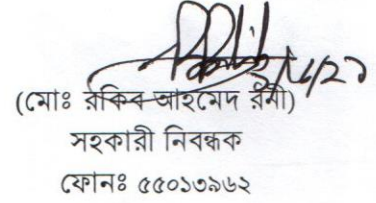 (মোঃ রকিব আহমেদ রনী)
সহকারী নিবন্ধক
ফোনঃ ৫৫০১৩৯৬২